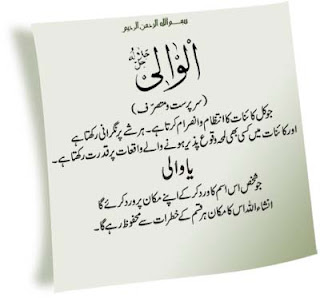 بسم اللہ الرحمن الرحیم
اَلْوَالِیْ جل جلالہ
(سرپرست و متصرّف)
جو کل کائنات کا انتظام و انصرام کرتا ہے۔ ہر شے پر نگرانی رکھتا ہے
اور کائنات میں کسی بھی لمحہ وقوع پذیر ہونے والے واقعات پر قدرت رکھتا ہے۔
یَا وَالِی
جو شخص اس اسم کا ورد کر کے اپنے مکان پر ورد کرئے گا
انشاء اللہ اس کا مکان ہر قسم کے خطرات سے محفوظ رہے گا۔